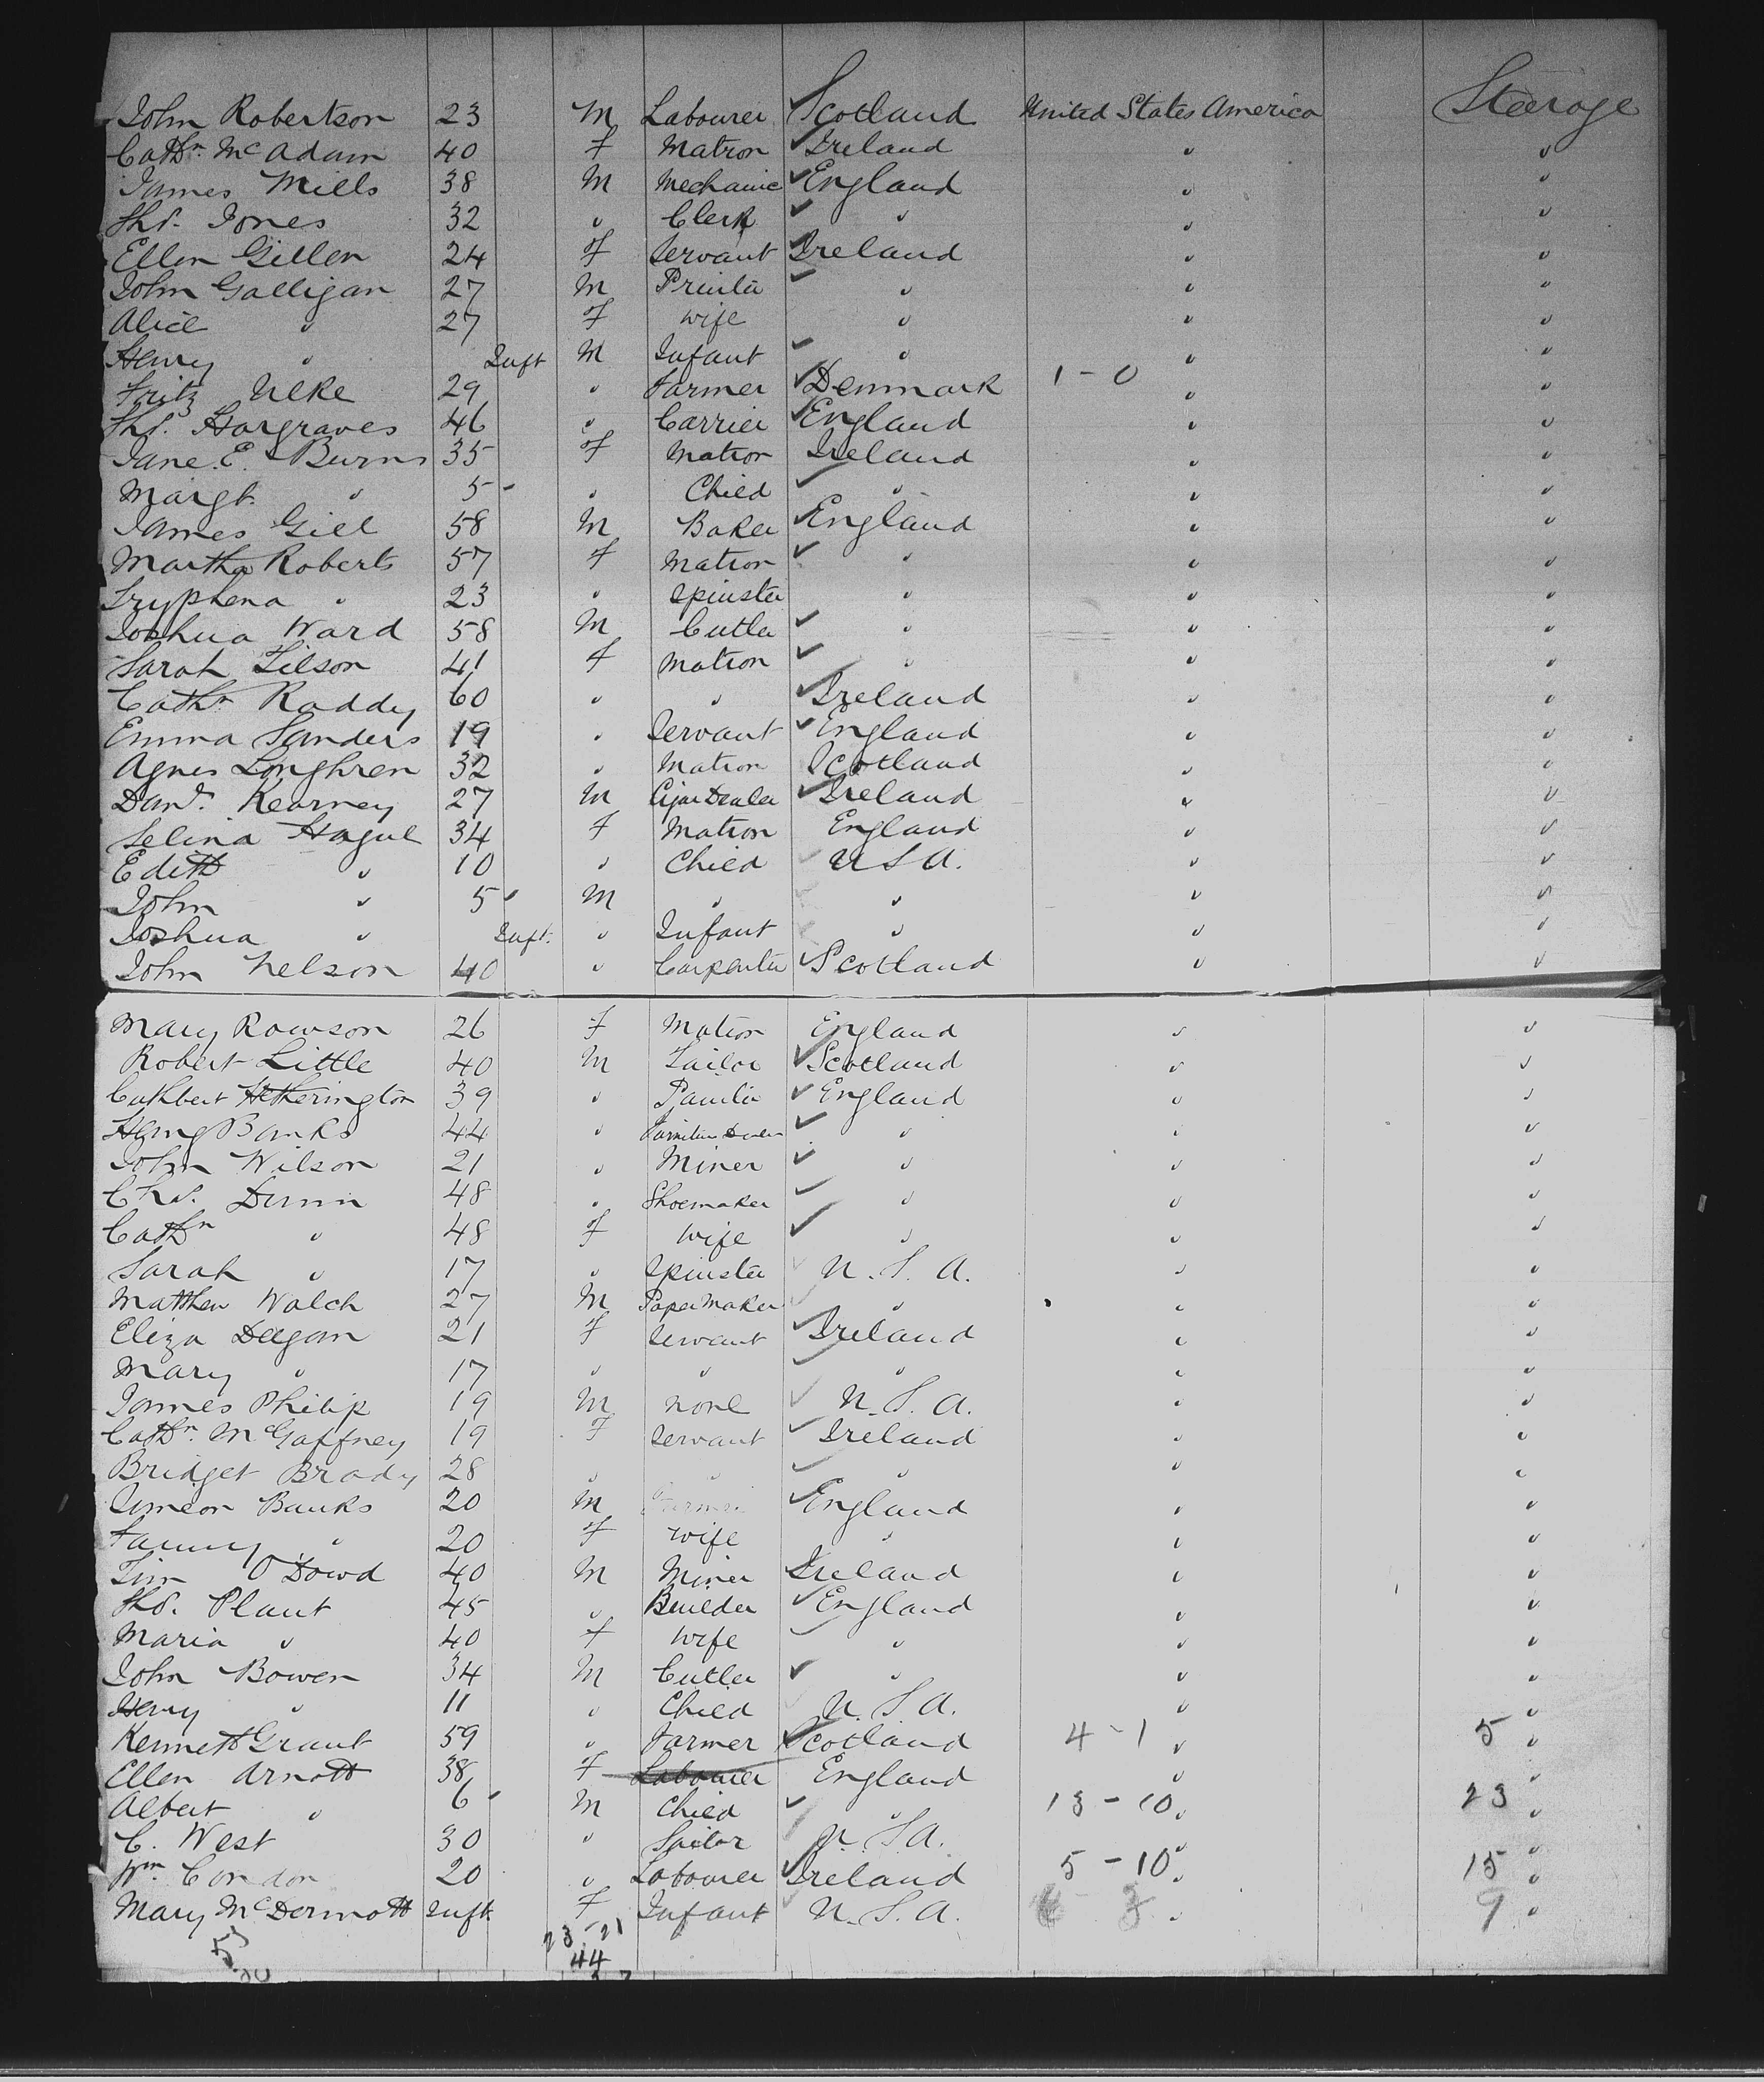 John Robertson 23 M Labourer Scotland United States America Steerage
Cathn. McAdam 40 F Matron Ireland " "
James Mills 38 M Mechanic England " "
Thos. Jones 32 " Clerk " " "
Ellen Gillen 24 F Servant Ireland " "
John Galligan 27 M Printer " " "
Alice " 27 F Wife " " "
Henry " Inft M Infant " " "
Fritz Ulke 29 " Farmer Denmark 1-0 " "
Thos. Hargraves 46 " Carrier England " "
Jane E. Burns 35 F Matron Ireland " "
Margt. " 5 " Child " " "
James Gill 58 M Baker England " "
Martha Roberts 57 F Matron " " "
Tryphena " 23 " Spinster " " "
Joshua Ward 58 M Cutler " " "
Sarah Tilson 41 F Matron " " "
Cathn Raddy 60 " " Ireland " "
Emma Sanders 19 " Servant England " "
Agnes Loughren 32 " Matron Scotland " "
Danl. Kearney 27 M Cigar Dealer Ireland " "
Selina Hague 34 F Matron England " "
Edith " 10 " Child U S A. " "
John " 5 M " " " "
Joshua " Inft. " Infant " " "
John Nelson 40 " Carpenter Scotland " "
Mary Rowson 26 F Matron England " "
Robert Little 40 M Tailor Scotland " "
Cuthbert Hetherington 39 " Painter England " "
Henry Banks 44 " Furniture Dealer " " "
John Wilson 21 " Miner " " "
Chs. Dunn 48 " Shoemaker " " "
Cathn " 48 F Wife " " "
Sarah " 17 " Spinster U. S. A. " "
Matthew Walch 27 M Paper Maker " " "
Eliza Deegan 21 F Servant Ireland " "
Mary " 17 " " " " "
James Philip 19 M none U. S. A. " "
Cathn. McGaffney 19 F Servant Ireland " "
Bridget Brady 28 " " " " "
Simeon Banks 20 M Farmer England " "
Fanny " 20 F Wife " " "
Tim O'Dowd 40 M Miner Ireland " "
Thos. Plant 45 " Builder England " "
Maria " 40 F Wife " " "
John Bowen 34 M Cutler " " "
Henry " 11 " Child U. S. A. " "
Kenneth Grant 59 " Farmer Scotland 4-1 " 5 "
Ellen Arnott 38 F Labourer England " "
Albert " 6 M Child " 13-10 " 23 "
C. West 30 " Sailor U. S. A. " "
Wm. Condon 20 " Labourer Ireland 5-10 " 15 "
Mary McDermott Inft. F Infant U. S. A. 3 " 9 "
53 23-21
44